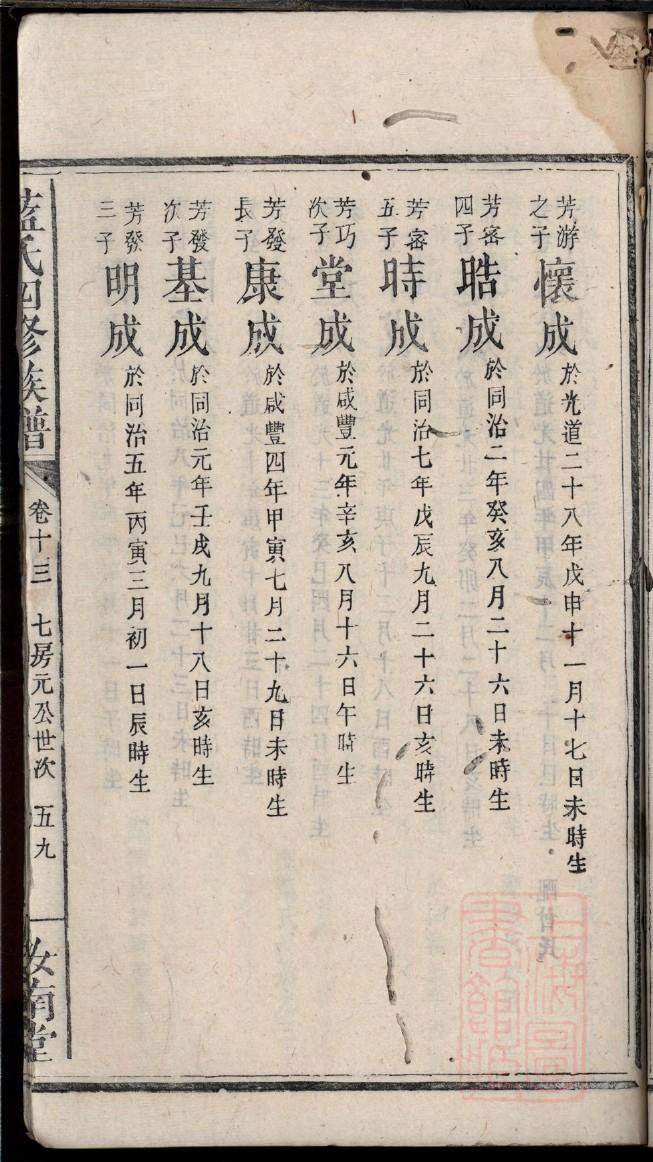 芳游之子 懷成 於光道二十八年戊申十一月十七日未時生
芳密四子 晧成 於同治二年癸亥八月二十六日未時生
芳密五子 時成 於同治七年戊辰九月二十六日亥時生
芳巧次子 堂成 於咸豐元年辛亥八月十六日午時生
芳發長子 康成 於咸豐四年甲寅七月二十九日未時生
芳發次子 基成 於同治元年壬戌九月十八日亥時生
芳發三子 明成 於同治五年丙寅三月初一日辰時生
藍氏四修族譜 卷十三 七房元公世次 五九 汝南堂